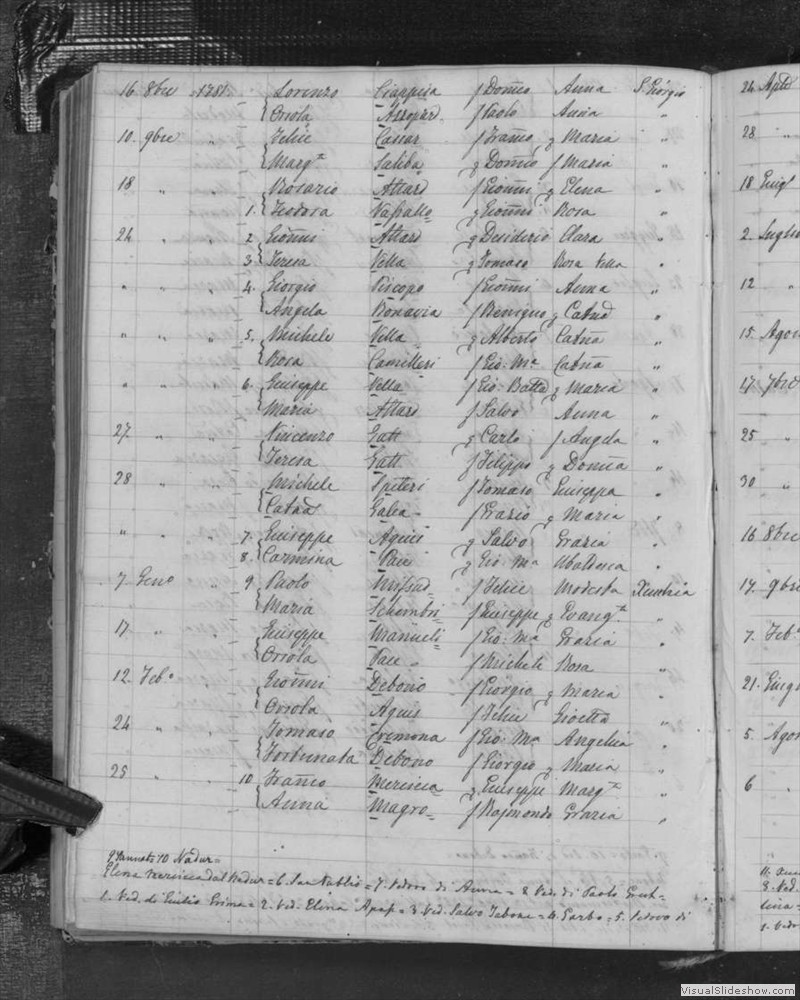 16. 8bre 1781. Lorenzo Ciappira f Dom̃co Anna S. Giorgio
Oriola Azzopar. f Paolo Anna "
10. 9bre " Felice Cassar f Franco q Maria "
Margta Saliba q Domco f Maria "
18 " " Rosario Attard f Gioñni q Elena "
1. Teodora Vassallo q Gioñni Rosa "
24 " " 2. Gioñni Attard q Desiderio Clara "
3. Teresa Vella q Tomaso Rosa Vella "
" " " 4. Giorgio Piscopo f Gioñni Anna "
Angela Bonavia f Benigno q Catna "
" " " 5. Michele Vella q Alberto Catna "
Rosa Camilleri f Gio: Ma Catna "
" " " 6. Giuseppe Vella f Gio: Batta q Maria "
Maria Attard f Salvo Anna "
27. " " Vincenzo Gatt q Carlo f Angela "
Teresa Gatt f Filippo q Domca "
28 " " Michele Spiteri f Tomaso Giuseppa "
Catna Galea f Grazio q Maria "
" " " 7. Giuseppe Agius q Salvo Grazia "
8. Carmina Pace q Gio: Ma Ubaldesca "
7. Geno 9 Paolo Mifsud f Felice Modesta Xeuchia
Maria Schembri f Giuseppe q Evangta "
17 " Giuseppe Manueli f Gio: Ma Grazia "
Oriola Pace f Michele Rosa "
12. Febo Gioñni Debono f Giorgio q Maria "
Oriola Agius f Felice Gioetta "
24 " Tomaso Cremona f Gio: Ma Angelica "
Fortunata Debono f Giorgio q Maria "
25 " 10 Franco Mercieca q Giuseppe Margta "
Anna Magro f Rajmondo Grazia "
10 Nadur
Elena Mercieca dal Nadur = 6. = 7. Vedovo di Anna = 8 Ved. di Paolo
1. Ved. di = 2. Ved. Elena Apap = 3. Ved. Salvo Tabone = 4. Garbo = 5. Vedovo di
24 Aple
28 "
18 Giugo
2. Luglio
12 "
15 Agos
17. 7bre
25 "
30 "
16 8bre
17. 9bre
7. Feb.
21. Giug
5. Agos
6 "
3. Ved.
1. Vedo
VisualSlideshow.com